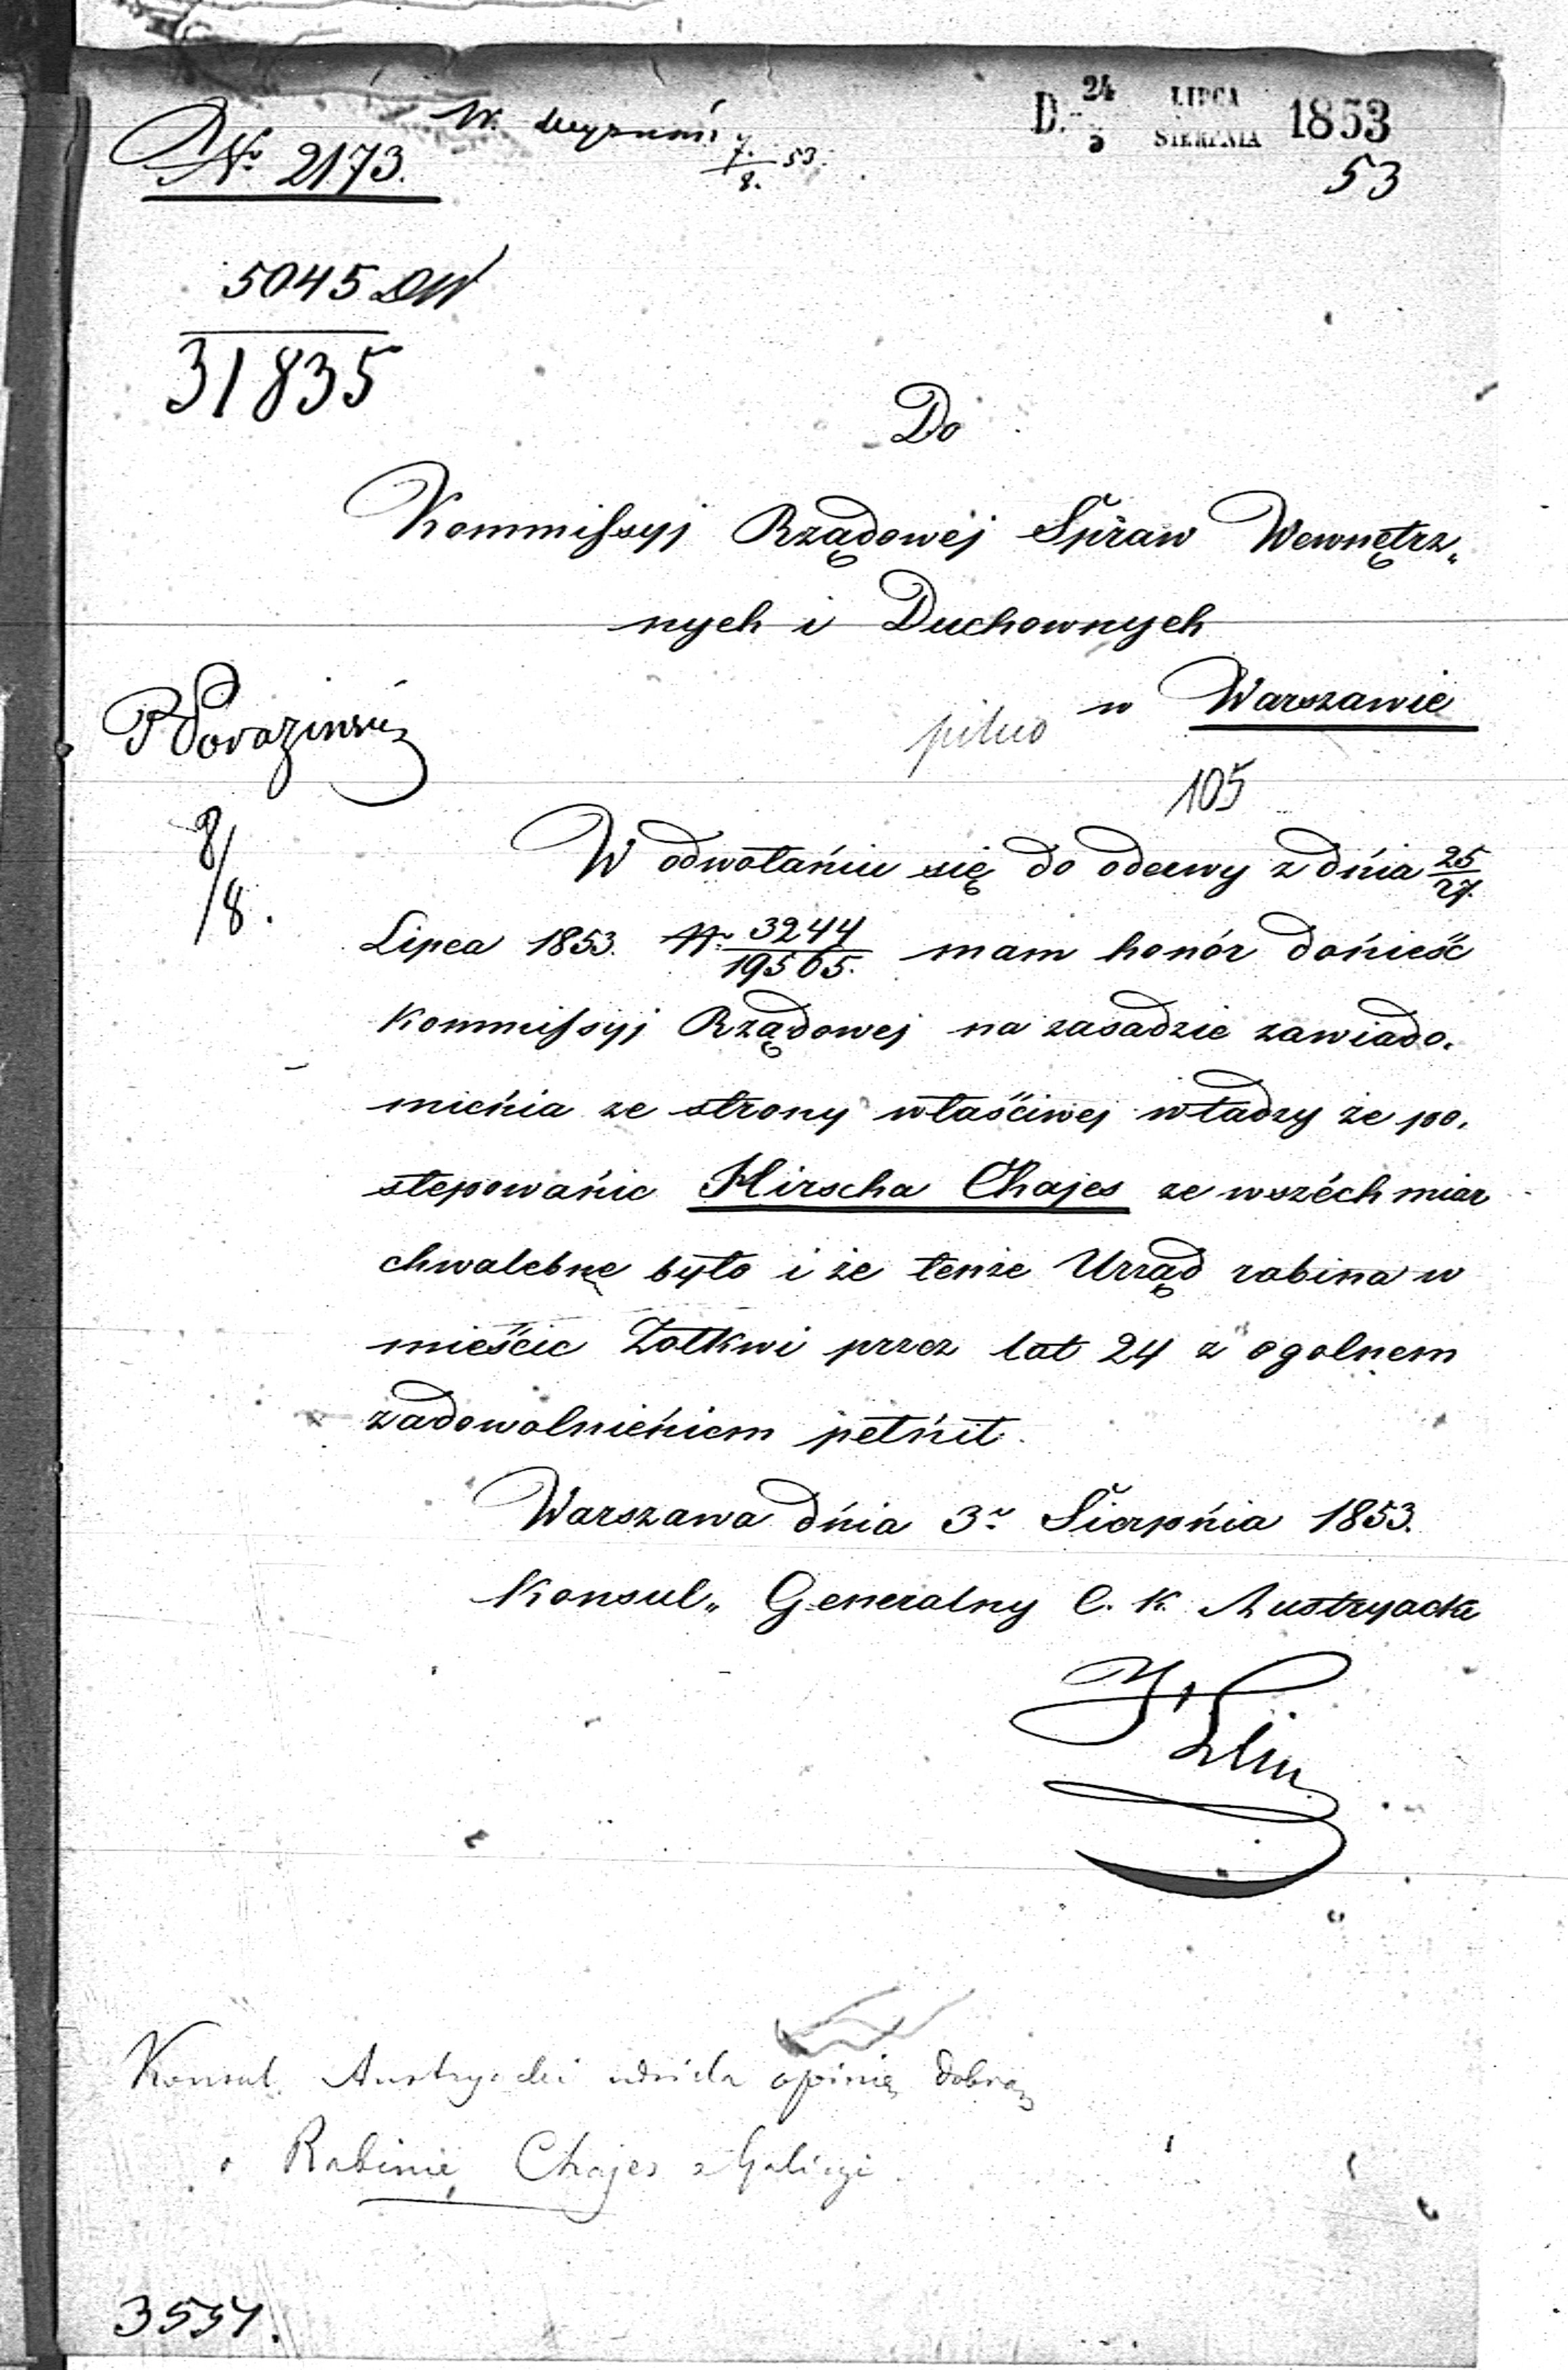 D. 24/5 LIPCA SIERPNIA 1853
53
No 2173.
W.
7./8. 53.
5045 DW
31835
Do
Kommissyj Rządowéj Spraw Wewnętrz„
nych i Duchownych
w Warszawie
pilno
105
8/8.
W odwołańiu się do odezwy z dńia 25/27.
Lipca 1853. No 3244/19565. mam honór dońieść
Kommissyj Rządowej na zasadzie zawiado.
mieńia ze strony właśćiwej władzy że po.
stepowańie Hirscha Chajes ze wszéch miar
chwalebnę było i że tenże Urząd rabina w
mieśćie Żołkwi przez lat 24 z ogolnem
zadowolnieńiem pełńił.
Warszawa dńia 3o Sierpńia 1853.
Konsul„ Generalny C. K. Austryacki
Konsul Austryacki udziela opinię dobrą
o Rabinie Chajes z Galicyi
3554.